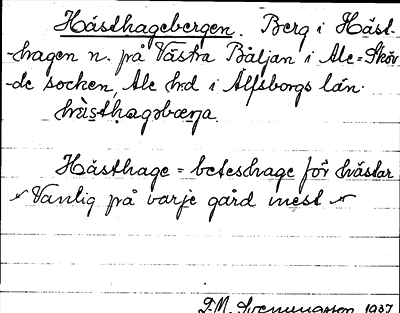 Hästhagebergen. Berg i Häst-
-hagen n. på Västra Båljan i Ale-Sköv
-de socken, Ale hd i Älfsborgs län.
hästhagabærja.
Hästhage = beteshage för hästar
"Vanlig på varje gård mest"
D.M. Svenungsson 1937